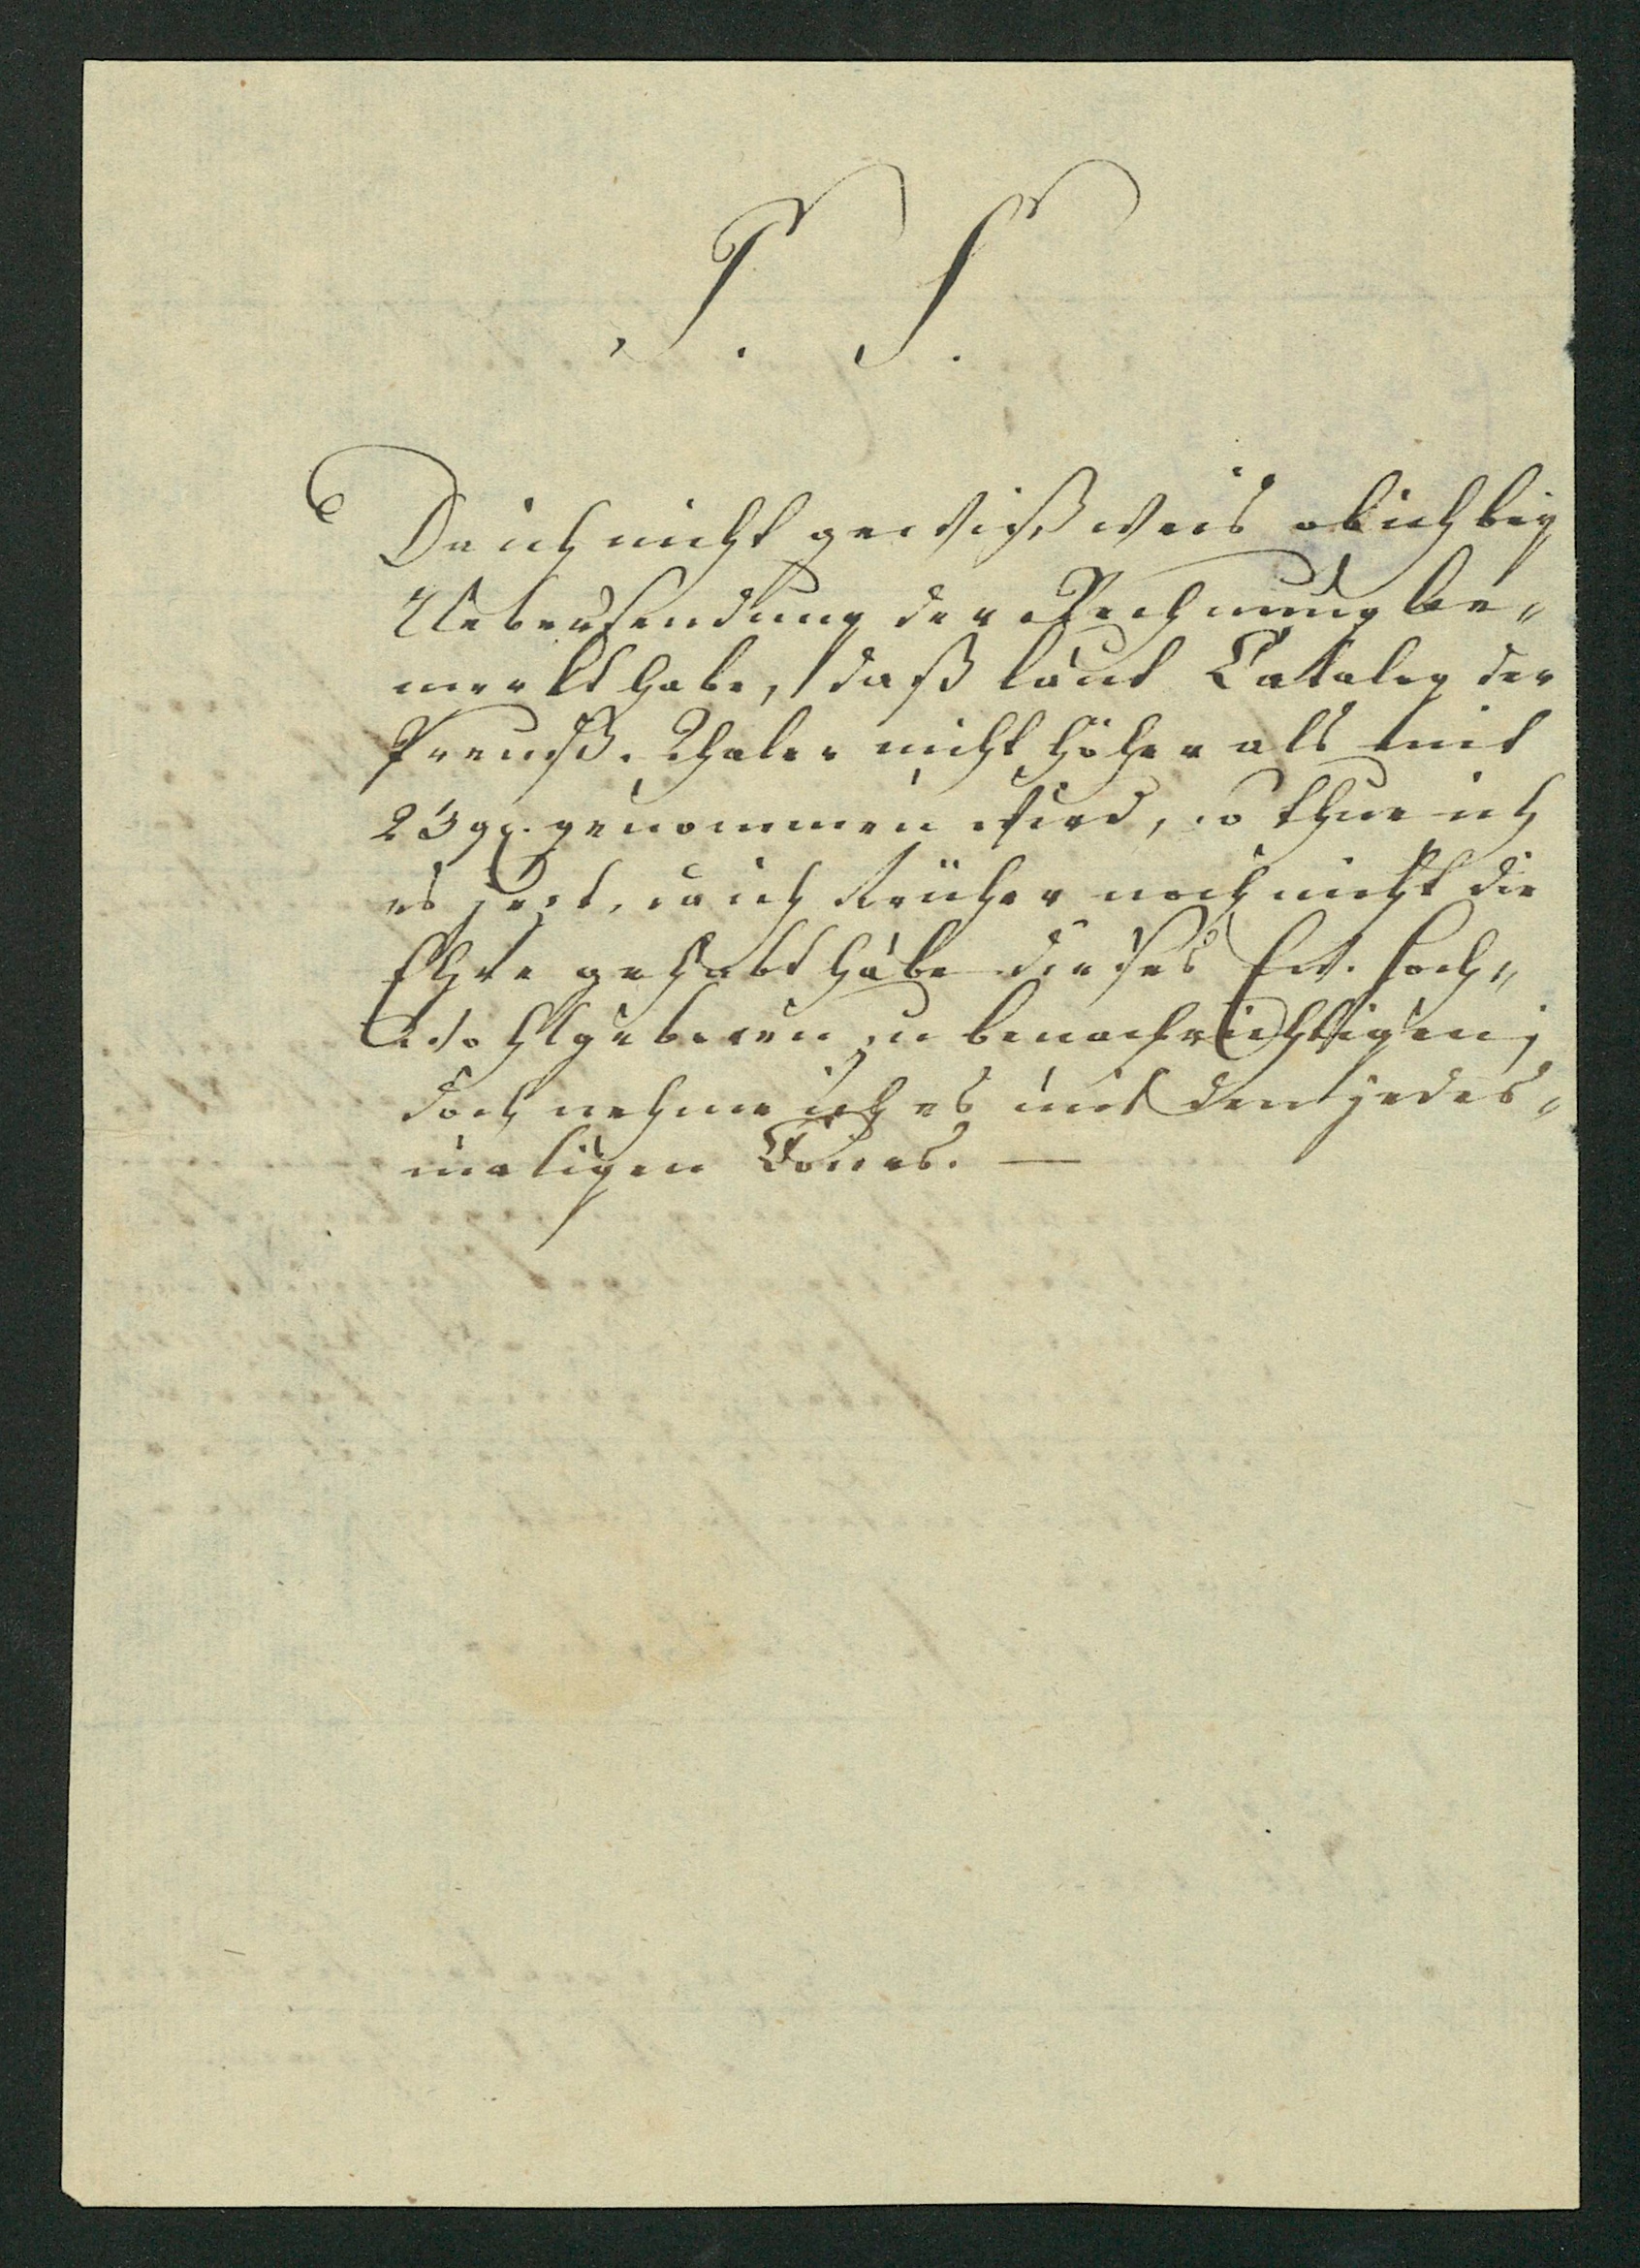 P. S.
Da ich nicht gewiß weis ob ich bey
Uebersendung der Rechnung be-
merkt habe, daß laut Catalog der
Preuß. Thaler nicht höher als mit
23 gr. genommen wird, so thue ich
es jezt, da ich früher noch nicht die
Ehre gehabt habe dieses Ew. Hoch-
wohlgeboren zu benachrichtigen;
doch nehme ich es mit den jedes-
maligen Cours. —